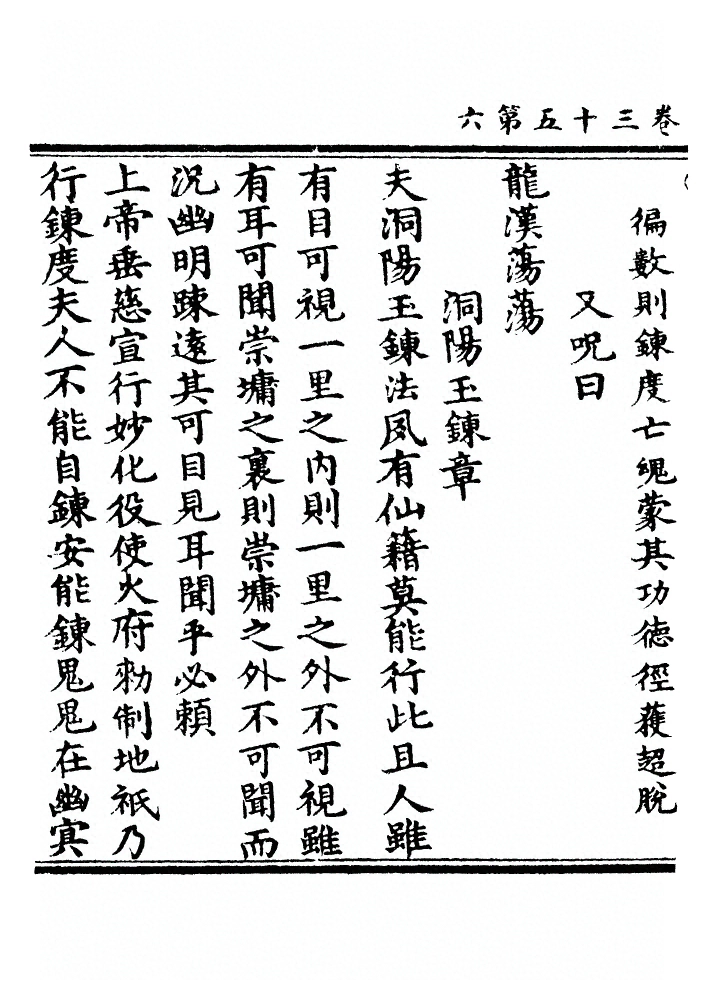 卷三十五第六
徧數則鍊度亡䰟蒙其功德徑獲超脫
又呪曰
龍漢蕩蕩
洞陽玉鍊章
夫洞陽玉鍊法夙有仙籍莫能行此且人雖
有目可視一里之內則一里之外不可視雖
有耳可聞崇墉之裏則崇墉之外不可聞而
況幽明踈遠其可目見耳聞乎必賴
上帝垂慈宣行妙化役使火府勑制地祇乃
行鍊度夫人不能自鍊安能鍊鬼鬼在幽㝠